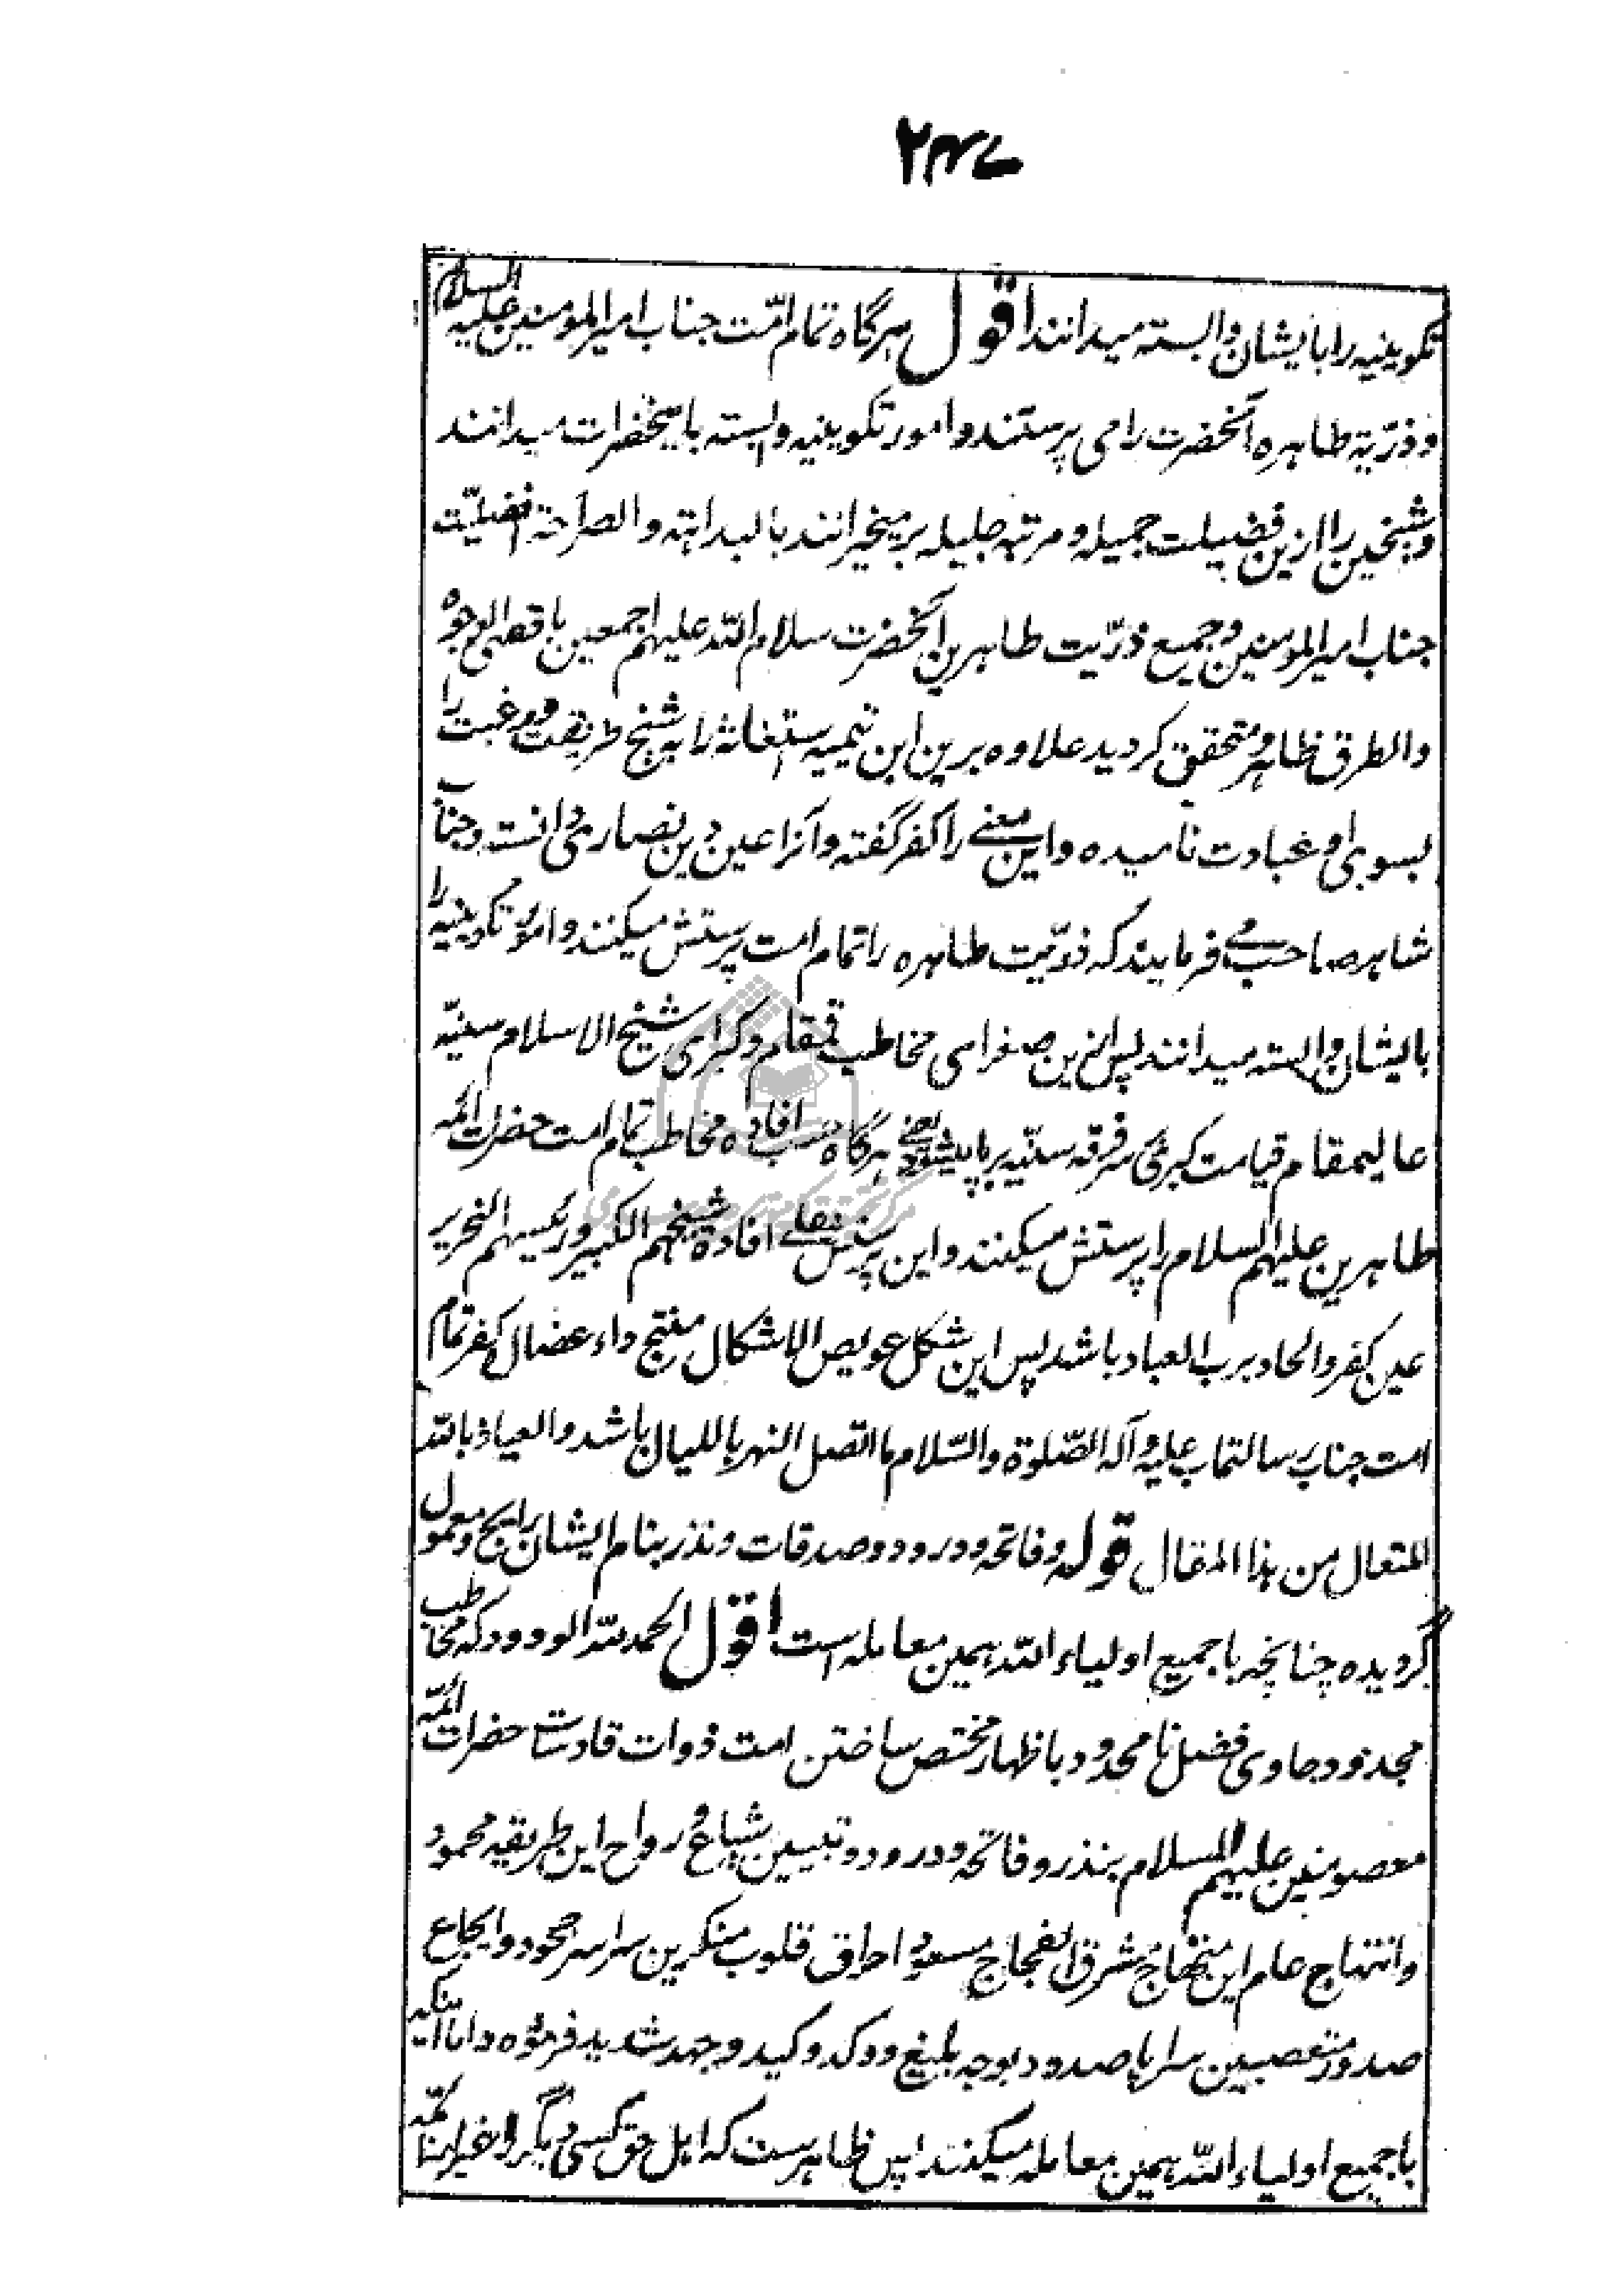 ۲۴۷
تکوینیه را بایشان وابسته میدانند اقول هرگاه تمام امّت جناب امیرالمومنین علیه السلام
و ذرّیة طاهره آنحضرت را می پرستند و امور تکوینیه وابسته باینحضرات میدانند
و شیخین را ازین فضیلت جمیله و مرتبه جلیله برمیخیزانند بالبداهته والصراحته افضلیّت
جناب امیرالمومنین و جمیع ذرّیت طاهرین آنحضرت سلام اللّه علیهم اجمعین باقصی الوجوه
والطرق ظاهر و متحقق گردید علاوه برین ابن تیمیه استغاثه را به شیخ طریقت و رغبت را
بسوی او عبادت نامیده و این معنے را کفر گفته و آنرا عین دین نصاری دانسته و جناب
شاهصاحب می فرمایند که ذرّیت طاهره را تمام امت پرستش میکنند و امور تکوینیه را
بایشان وابسته میدانند پس ازین صغرای مخاطب قمقام و کبرای شیخ الاسلام سنیّه
عالیمقام قیامت کبری بر فرقه سنّیه برپا میشود یعنے هرگاه حسب افاده مخاطب تمام امت حضرات ائمه
طاهرین علیهم السلام را پرستش میکنند و این پرستش علے افادة شیخهم الکبیر و رئیسهم النحریر
عین کفر و الحاد برب العباد باشد پس این شکل عویص الاشکال منتج داء عضال کفر تمام
امت جناب رسالتماب علیه و آله الصّلوة والسّلام ما اتّصل النهر باللیال باشد والعیاذ باللّه
المتعال من هذا المقال قوله و فاتحه و درود و صدقات و نذر بنام ایشان رایج و معمول
گردیده چنانچه با جمیع اولیاء اللّه همین معامله است اقول الحمد للّه الودود که مخاطب
مجدود حاوی فضل نامحدود باظهار مختص ساختن امت ذوات قادسات حضرات ائمّه
معصومین علیهم السلام بنذر و فاتحه و درود و تبیین شیاع و رواج این طریقه محمود
و انتهاج عام این منهاج مشرق الفجاج مسعود احراق قلوب منکرین سراسر جحود و ایجاع
صدور متعصبین سراپا صدود بوجه بلیغ و وکد وکید و جهد شدید فرموده و اما اینکه
با جمیع اولیاء اللّه همین معامله میکنند پس ظاهرست که اهل حق کسی دیگر را غیر ائمّه